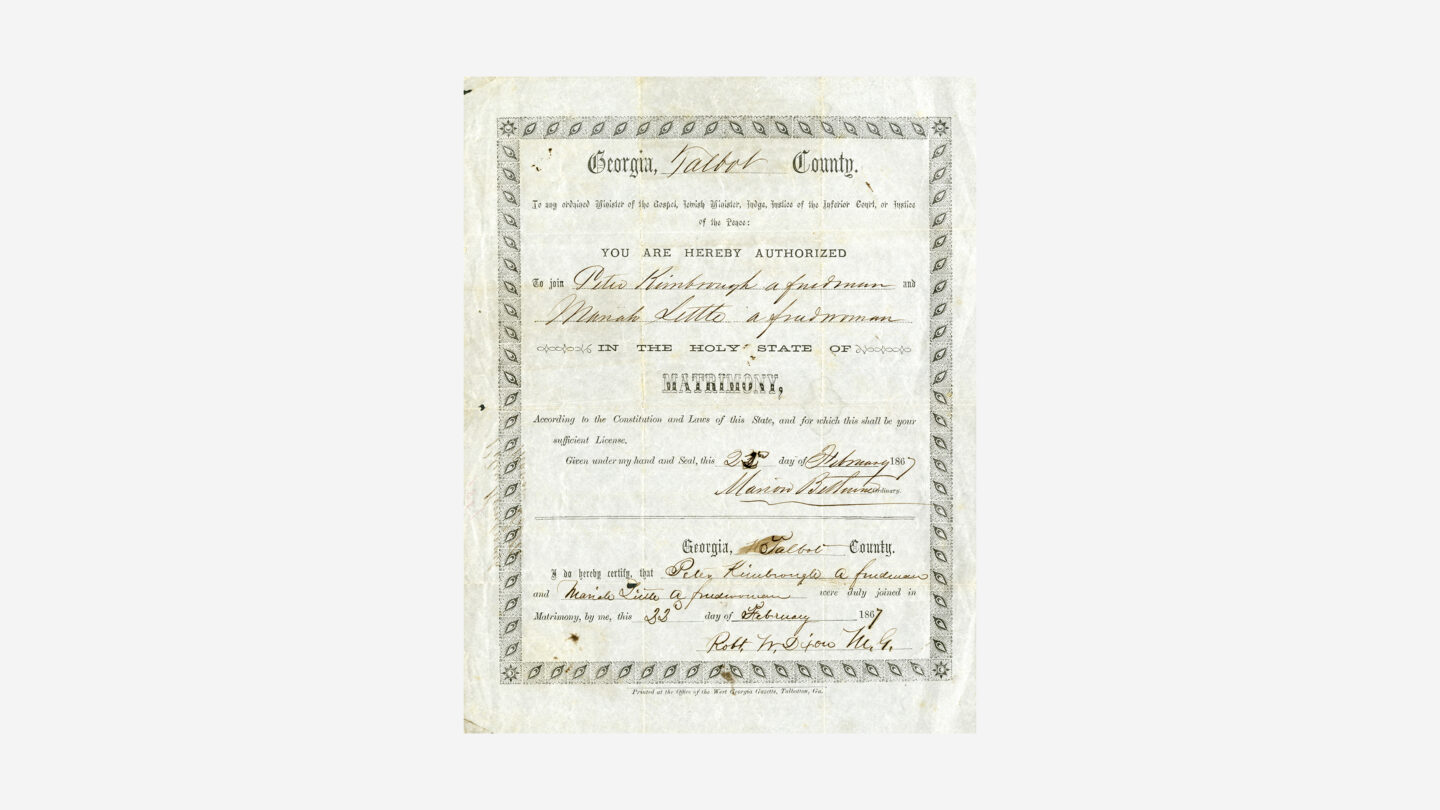 Georgia, Talbot County.
To any ordained Minister of the Gospel, Jewish Minister, Judge, Justice of the Inferior Court, or Justice
of the Peace:
YOU ARE HEREBY AUTHORIZED
To join Peter Kimbrough a freedman and
Mariah Little a freedwoman
IN THE HOLY STATE OF
MATRIMONY,
According to the Constitution and Laws of this State, and for which this shall be your
sufficient License.
Given under my hand and Seal, this day of February 1867
Marion Bethune Ordinary.
Georgia, Talbot County.
I do hereby certify, that Peter Kimbrough a freedman
and Mariah Little a freedwoman were duly joined in
Matrimony, by me, this 22d day of February 1867
Robt. W. Dixon M. G.
Printed at the Office of the West Georgia Gazette, Talbotton, Ga.